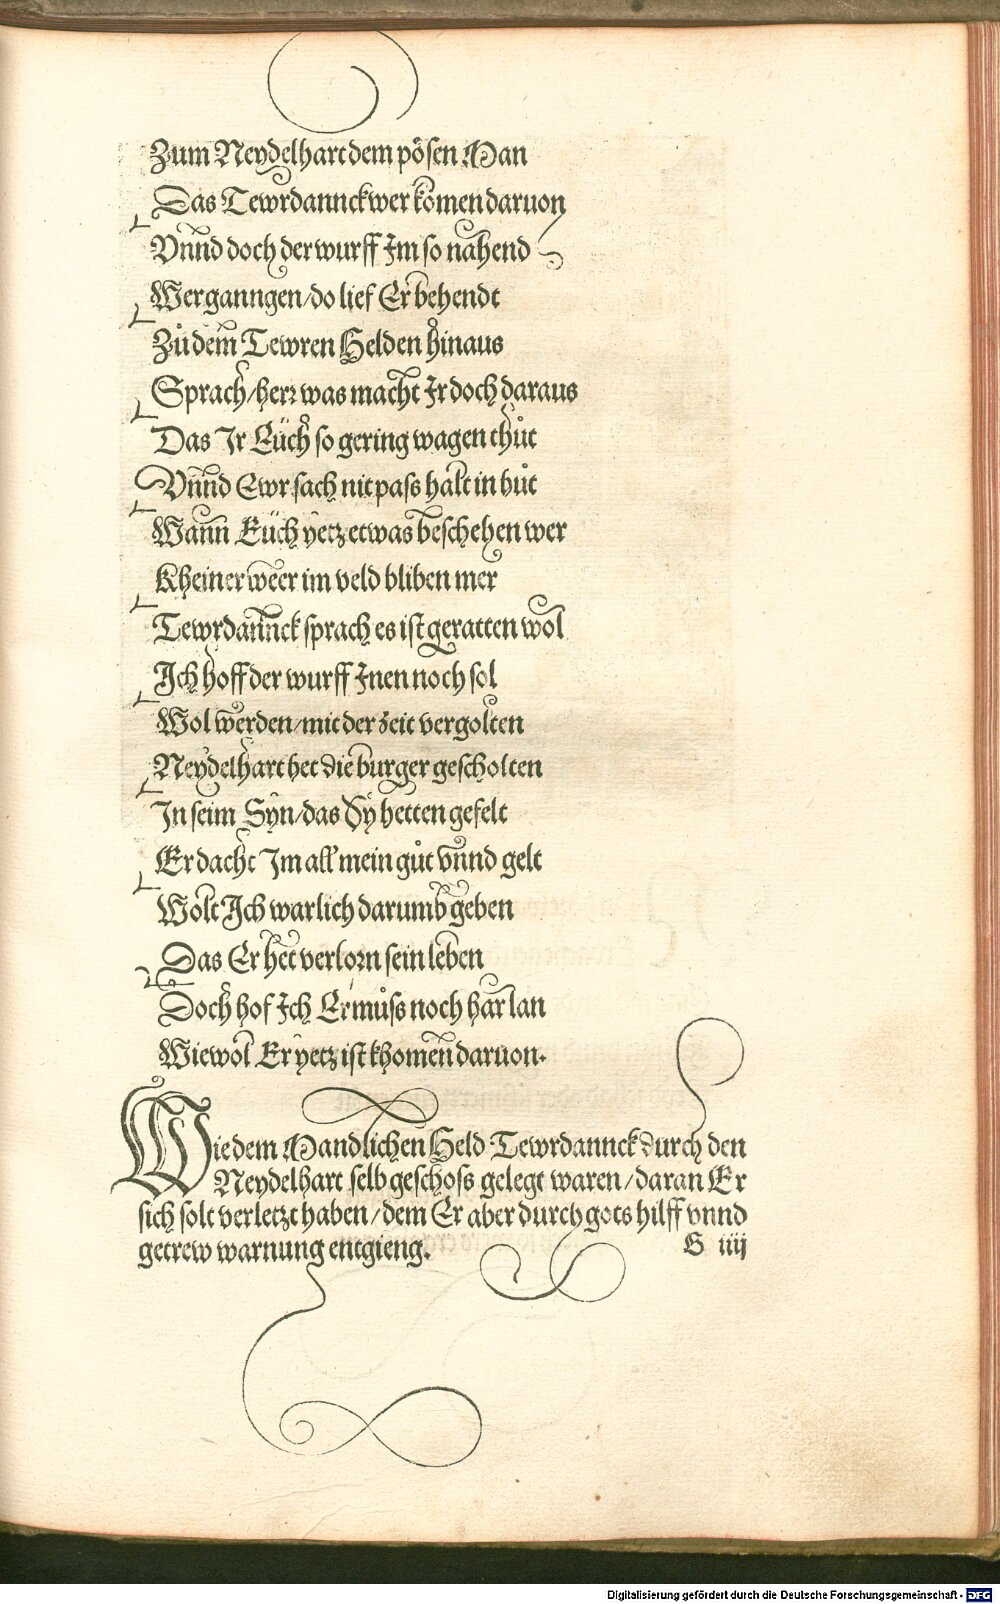 Zum Neydelhart dem pösen Man
Das Tewrdannck wer komen daruon
Vnnd doch der wurff Im so nahend
Wer ganngen/do lief Er behendt
Zů dem Tewren Helden hinaus
Sprach/herr was macht Ir doch daraus
Das Ir Eüch so gering wagen thůt
Vnnd Ewr sach nit pass halt in hůt
Wann Eüch yetz etwas beschehen wer
Kheiner weer im veld bliben mer
Tewrdannck sprach es ist geratten wol
Ich hoff der wurff Inen noch sol
Wol werden/mit der zeit vergolten
Neydelhart het die burger gescholten
In seim Syn/das Sy hetten gefelt
Er dacht Im all mein gůt vnnd gelt
Wolt Ich warlich darumb geben
Das Er het verlorn sein leben
Doch hof Ich Er můss noch har lan
Wiewol Er yetz ist khomen daruon.
Wie dem Mandlichen Held Tewrdannck durch den
Neydelhart selbgeschoss gelegt waren/daran Er
sich solt verletzt haben/dem Er aber durch gots hilff vnnd
getrew warnung entgieng.
G iiij
Digitalisierung gefördert durch die Deutsche Forschungsgemeinschaft - DFG